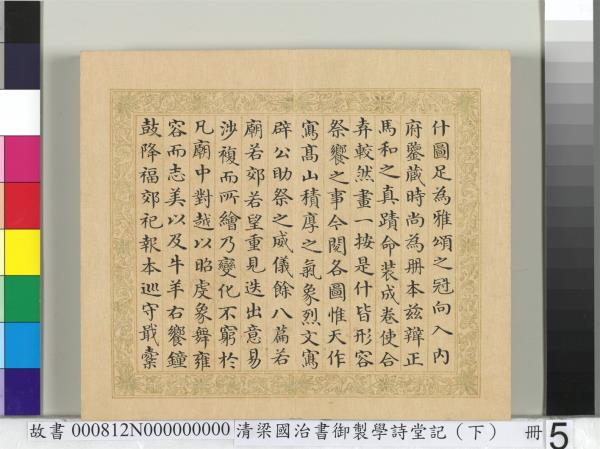 什圖足為雅頌之冠向入內
府鑒藏時尚為册本茲辯正
馬和之真蹟命裝成卷使合
弆較然畫一按是什皆形容
祭饗之事今閱各圖惟天作
寫髙山積厚之氣象烈文寫
辟公助祭之威儀餘八篇若
廟若郊若望重見迭出意易
涉複而所繪乃變化不窮於
凡廟中對越以昭虔象舞雍
容而志美以及牛羊右饗鐘
鼓降福郊祀報本巡守戢櫜
故書 000812N000000000 清梁國治書御製學詩堂記（下） 冊5